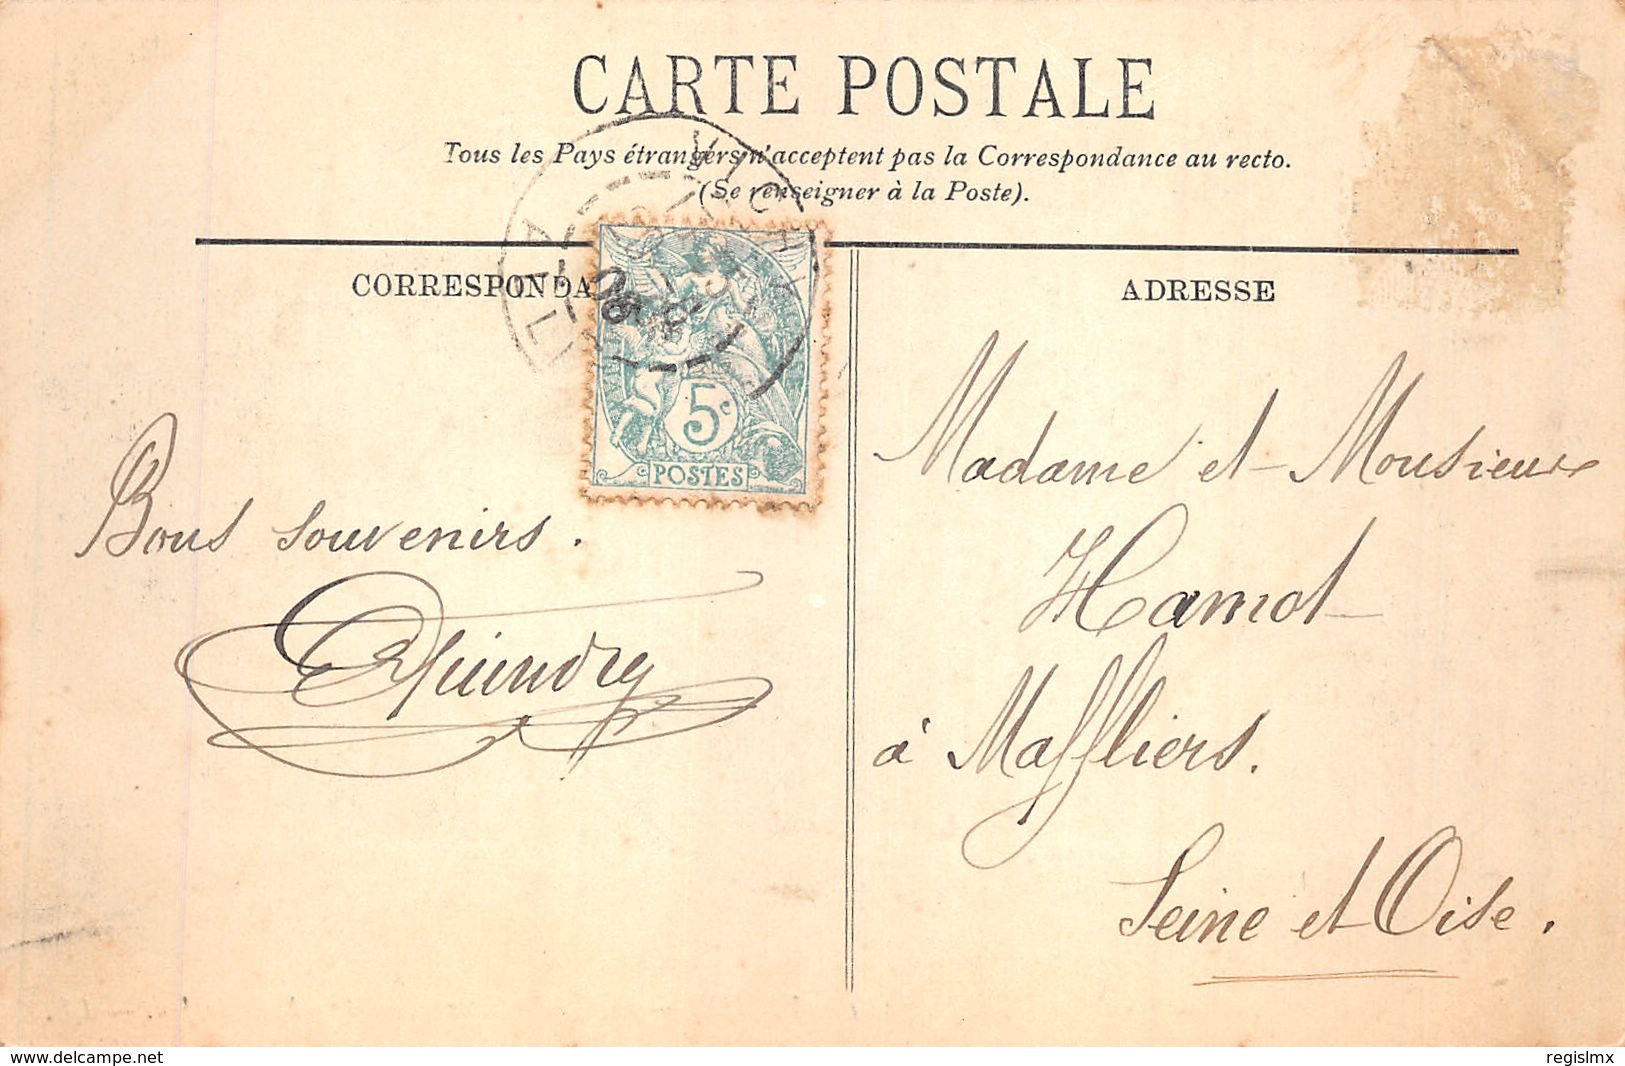 CARTE POSTALE
Tous les Pays étrangers n'acceptent pas la Correspondance au recto.
(Se renseigner à la Poste).
CORRESPONDA
ADRESSE
5c
POSTES
Bons souvenirs.
Madame et Monsieur
Hamot
à Maffliers.
Seine et Oise.
www.delcampe.net
regislmx